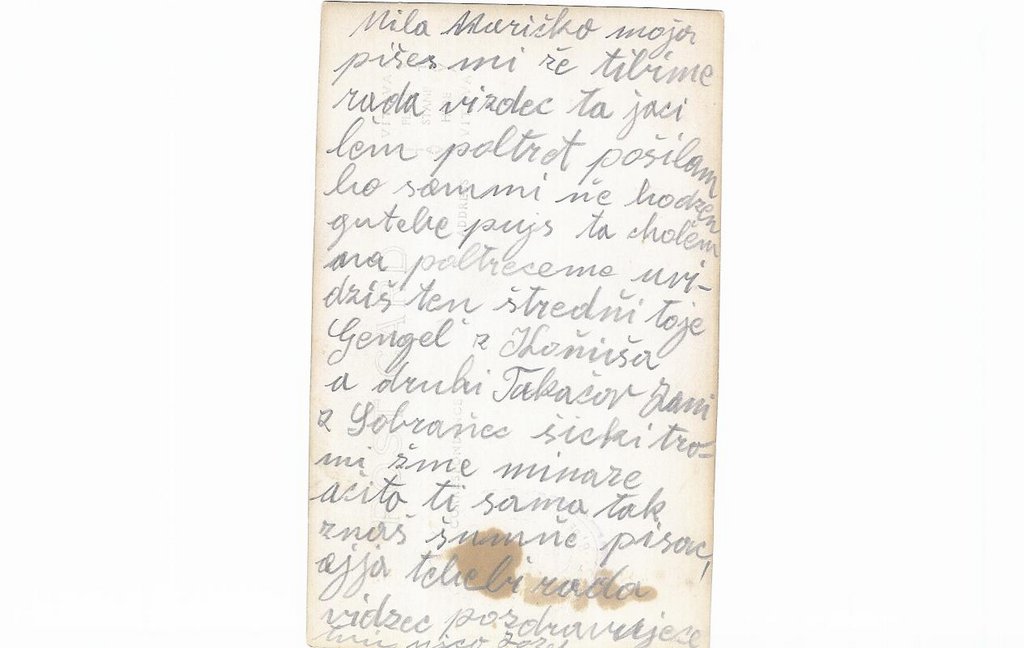 Mila Maričko moja
pišeš mi že tibime
rada vizdec ta jaci
lem poltret pošilam
bo sam mi ňe hodzen
gutebe pujs ta cholem
na poltreceme uvi-
dziš ten štredňi toje
Gengel z Koňuša
a druhi Takačov Jani
z Sobraňec šicki tro-
mi zme minare
ačito ti sama tak
znaš šumňe pisac,
ajja tebebi rada
vidzec pozdravujece